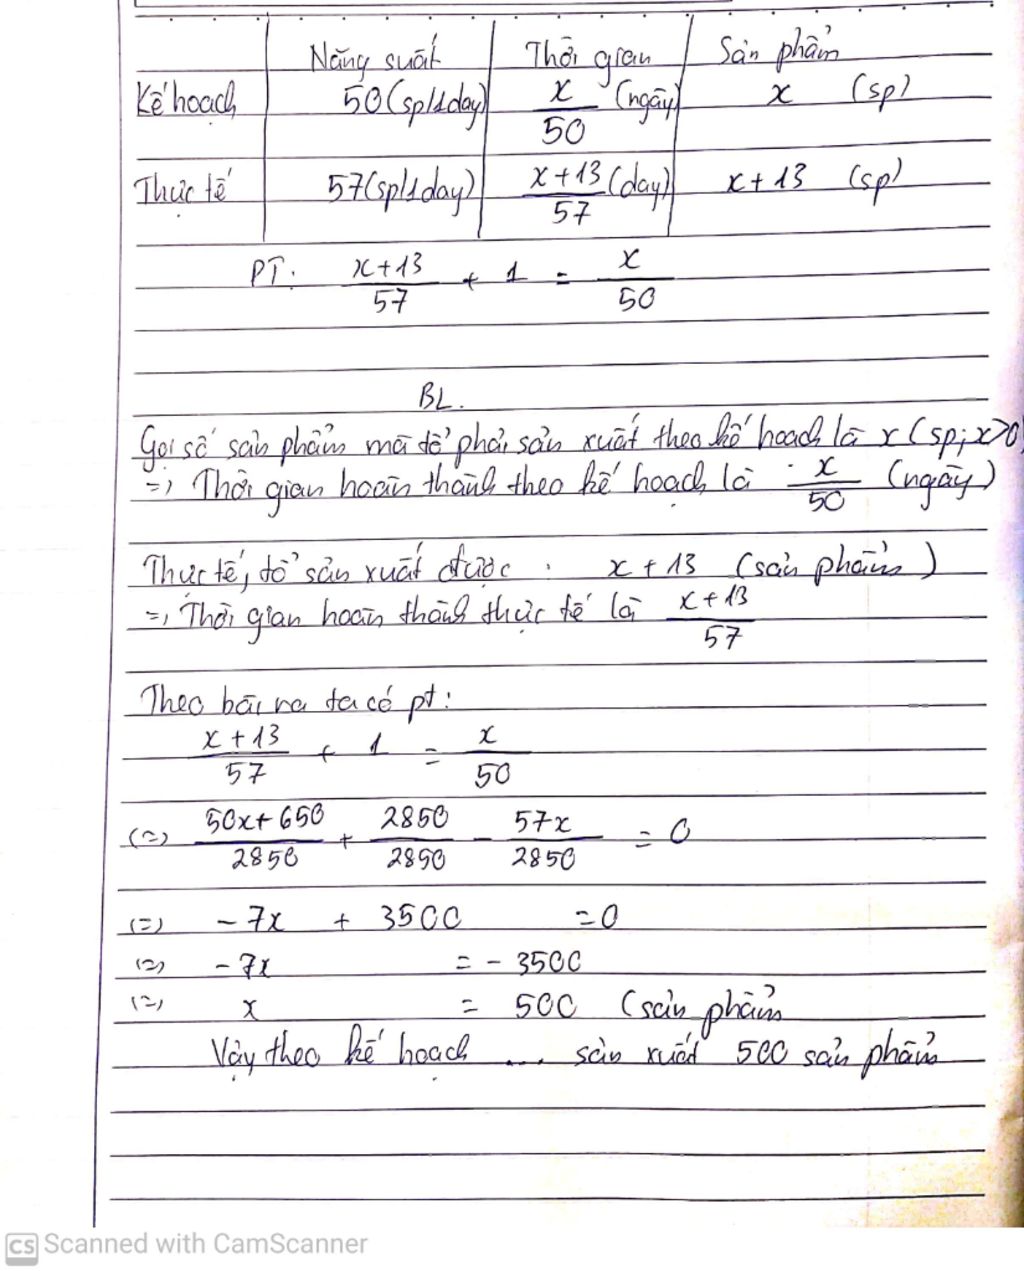 Năng suất Thời gian Sản phẩm
Kế hoạch 50 (sp/1day) x/50 (ngày) x (sp)
Thực tế 57 (sp/1day) x+13/57 (day) x+13 (sp)
PT: x+13/57 + 1 = x/50
BL.
Gọi số sản phẩm mà tổ phải sản xuất theo kế hoạch là x (sp; x>0
=) Thời gian hoàn thành theo kế hoạch là x/50 (ngày)
Thực tế, tổ sản xuất được : x + 13 (sản phẩm)
=) Thời gian hoàn thành thực tế là x+13/57
Theo bài ra ta có pt:
x+13/57 + 1 = x/50
(=) 50x+650/2850 + 2850/2850 - 57x/2850 = 0
(=) -7x + 3500 = 0
(=) -7x = -3500
(=) x = 500 (sản phẩm
Vậy theo kế hoạch ... sản xuất 500 sản phẩm
CS Scanned with CamScanner